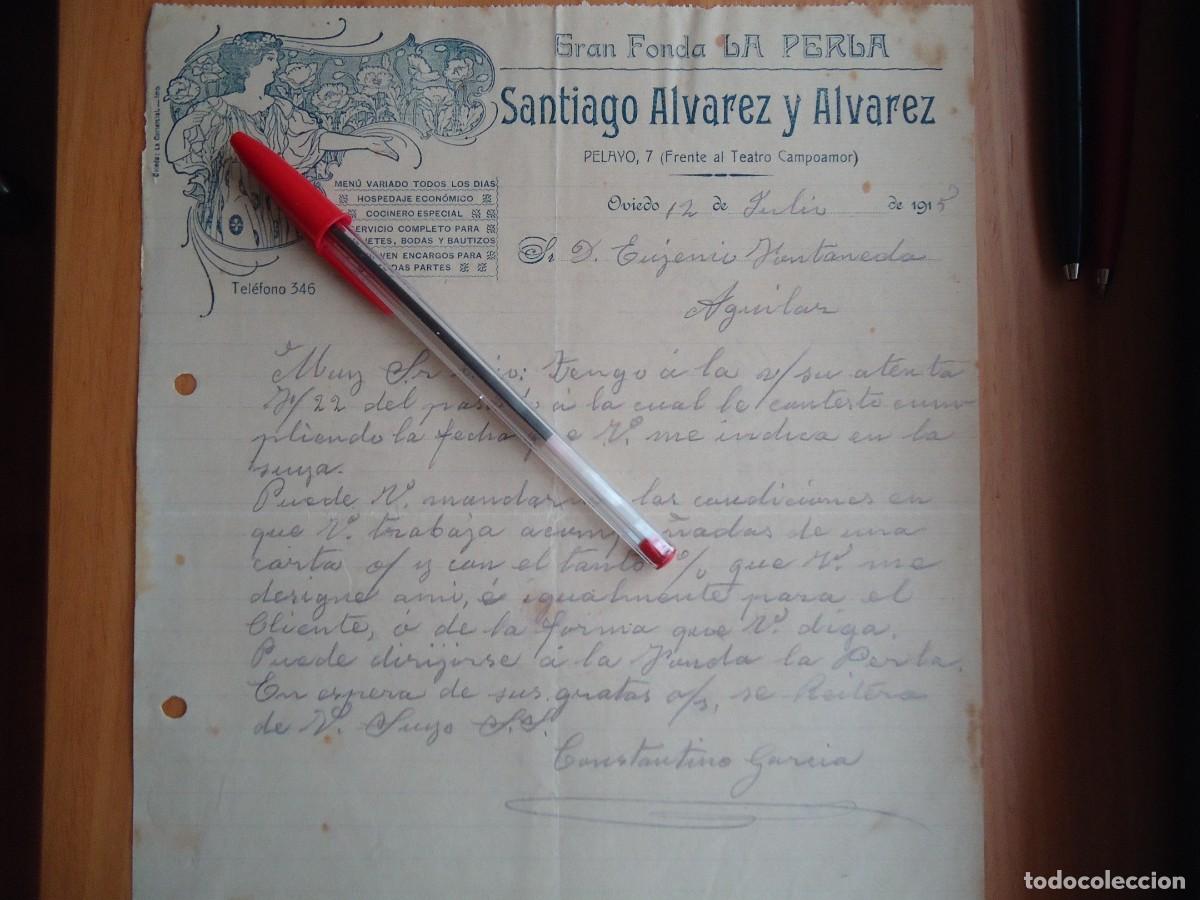 Gran Fonda LA PERLA
Santiago Alvarez y Alvarez
PELAYO, 7 (Frente al Teatro Campoamor)
MENÚ VARIADO TODOS LOS DIAS
HOSPEDAJE ECONÓMICO
COCINERO ESPECIAL
SERVICIO COMPLETO PARA
BODAS Y BAUTIZOS
ENCARGOS PARA
PARTES
Teléfono 346
Oviedo 12 de Julio de 1915
Sr. D. Eugenio Fontaneda
Aguilar
Muy Sr mio: Tengo á la v/ su atenta
F/22 del pasado á la cual le contesto cum
pliendo la fecha que V. me indica en la
suya.
Puede V. mandarme las condiciones en
que V. trabaja acompañadas de una
carta o/ y con el tanto % que V. me
designe ami, é igualmente para el
Cliente, ó de la forma que V. diga.
Puede dirijirse á la Fonda la Perla.
En espera de sus gratas o/s, se Reitera
de V. Suyo S.S.
Constantino Garcia
todocoleccion